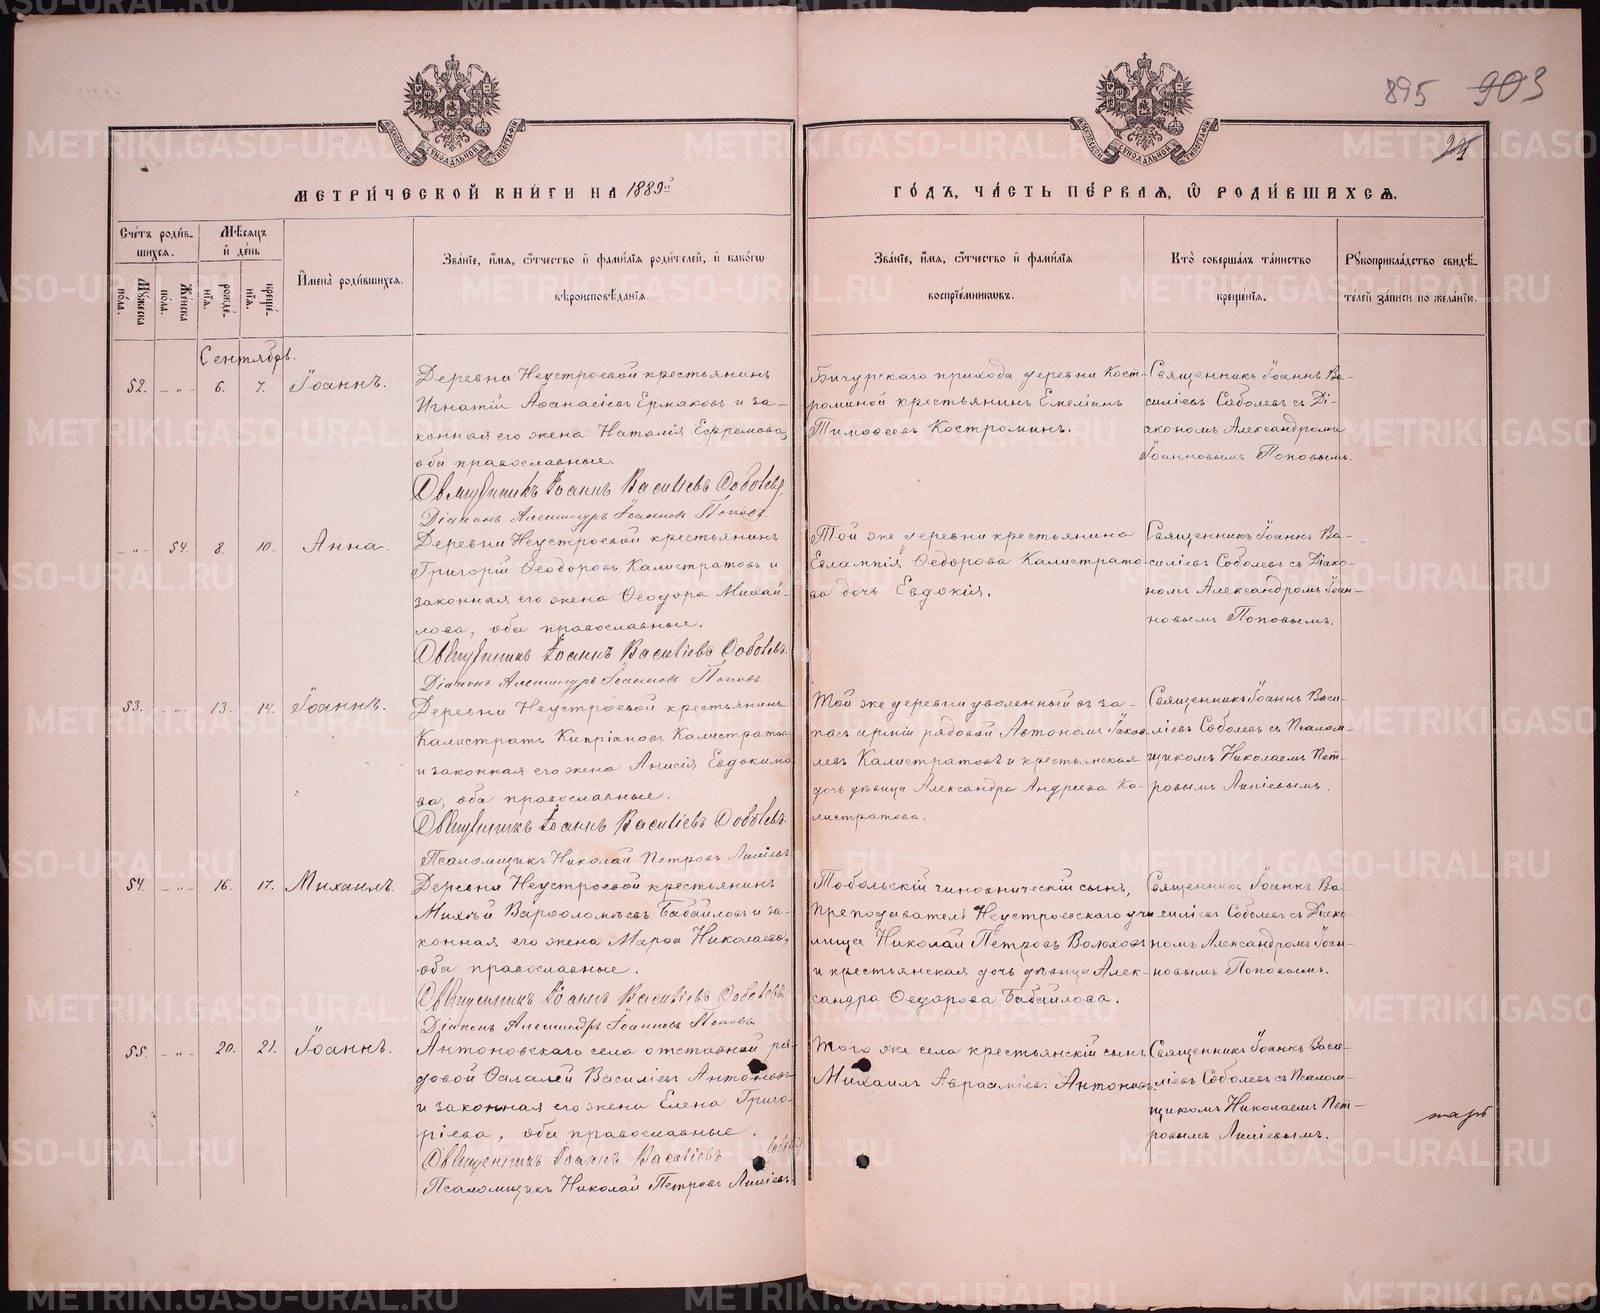 895 903
МЕТРИ́ЧЕСКОЙ КНИ́ГИ НА 1889й
ГО́ДЪ, ЧА́СТЬ ПЕ́РВАѦ, Ѡ РОДИ́ВШИХСѦ.
МОСКОВСКОЙ СѴНОДАЛЬНОЙ ТИПОГРАФІИ
Сче́тъ роди́в-
шихся.
Мѣ́сяцъ
и́ де́нь
Мꙋ́жеска по́ла.
Же́нска по́ла.
рожде́-
нїя.
креще́-
нїя.
И҆мена̀ роди́вшихся.
Зва́нїе, и҆́мя, ѻ҆́тчество и҆ фами́лїя роди́телей, и҆ како́гѡ
вѣроисповѣ́данїя.
Зва́нїе, и҆́мя, ѻ҆́тчество и҆ фами́лїя
воспрїе́мниковъ.
Кто̀ соверша́лъ та́инство
креще́нїя.
Рꙋкоприкла́дство свидѣ́-
телей за́писи по жела́нїю.
Сентябрь.
52. - „ - 6. 7. Іоаннъ.
Деревни Неустроевой крестьянинъ
Игнатій Аѳанасіевъ Ермаковъ и за-
конная его жена Наталія Ефремова,
оба православные.
Священникъ Іоаннъ Василіевъ Соболевъ
Діаконъ Александръ Іоанновъ Поповъ
Бичурскаго прихода деревни Кост-
роминой крестьянинъ Емеліанъ
Тимоѳеевъ Костроминъ.
Священникъ Іоаннъ Ва-
силіевъ Соболевъ съ Ді-
акономъ Александромъ
Іоанновымъ Поповымъ.
- „ - 54. 8. 10. Анна.
Деревни Неустроевой крестьянинъ
Григорій Ѳеодоровъ Калистратовъ и
законная его жена Ѳеодора Михай-
лова, оба православные.
Священникъ Іоаннъ Василіевъ Соболевъ.
Діаконъ Александръ Іоанновъ Поповъ
Той же деревни крестьянина
Евлампія Ѳедорова Калистрато-
ва дочь Евдокія.
Священникъ Іоаннъ Ва-
силіевъ Соболевъ съ Діако-
номъ Александромъ Іоан-
новымъ Поповымъ.
53. - „ - 13. 14. Іоаннъ.
Деревни Неустроевой крестьянинъ
Калистратъ Кипріановъ Калистратовъ
и законная его жена Анисія Евдокимо
ва, оба православные.
Священникъ Іоаннъ Василіевъ Соболевъ.
Псаломщикъ Николай Петровъ
Той же деревни уволенный въ за-
пасъ арміи рядовой Автономъ Іаков
левъ Калистратовъ и крестьянская
дочь дѣвица Александра Андреева Ка-
листратова.
Священникъ Іоаннъ Васи-
ліевъ Соболевъ съ Псалом-
щикомъ Николаемъ Пет-
ровымъ
54. - „ - 16. 17. Михаилъ.
Деревни Неустроевой крестьянинъ
Михѣй Варѳоломѣевъ Бабайловъ и за-
конная его жена Марѳа Николаева,
оба православные.
Священникъ Іоаннъ Василіевъ Соболевъ
Діаконъ Александръ Іоанновъ Поповъ
Тобольскій чиновническій сынъ,
преподаватель Неустроевскаго учи
лища Николай Петровъ Волоховъ
и крестьянская дочь дѣвица Алек-
сандра Ѳедорова Бабайлова.
Священникъ Іоаннъ Ва
силіевъ Соболевъ съ Діако-
номъ Александромъ Іоан-
новымъ Поповымъ.
55. - „ - 20. 21. Іоаннъ.
Антоновскаго села отставной ря-
довой Ѳалалей Василіевъ Антоновъ
и законная его жена Елена Григо-
ріева, оба православные.
Священникъ Іоаннъ Василіевъ Соболевъ
Псаломщикъ Николай Петровъ
Того же села крестьянскій сынъ
Михаилъ Авраміевъ Антоновъ.
Священникъ Іоаннъ Васи-
ліевъ Соболевъ съ Псалом-
щикомъ Николаемъ Пет-
ровымъ
METRIKI.GASO-URAL.RU